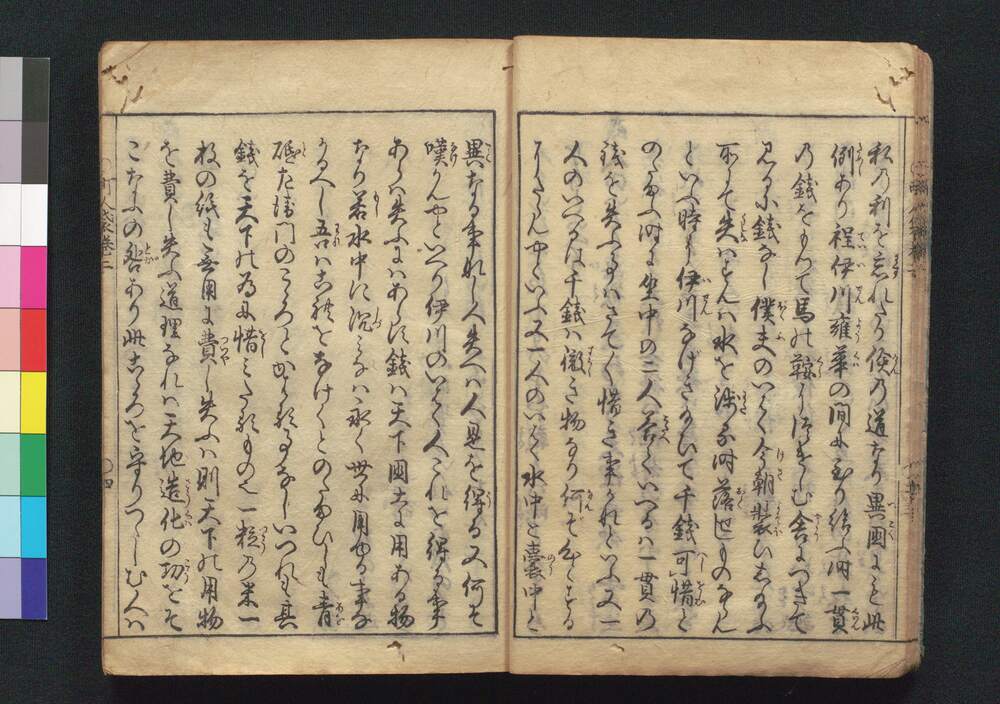 私乃利を忘れたり儉乃道なり異國にも此
例あり程伊川雍華の間に至り給ふ時一貫
乃錢をもつて馬の鞍にはさましむ舍につきて
見るに錢なし僕夫のいはく今朝裝ひしたまふ
所にて失はずんば水を渉る時落せしものならん
といへ時に伊川なげきたまいて千錢可惜と
のたまふ時に坐中の二人答ていへるは一貫の
錢を失ふ事はさて〱惜き事かなといふ又一
人のいへるは千錢は微き物なり何ぞ心とする
にたらんやといふ又一人のいはく水中と囊中と
異なる事なし人失へば人是を得る又何ぞ
嘆かんやといへり伊川のいはく人これを得る事
あらば失ふにはあらず錢は天下國土に用ある物
なり若水中に沉みなば永く世に用ゆる事な
かるべし吾はこれをなげくとのたまひしも青
砥左衛門のこゝろとかはる事なしいづれも其
錢を天下の為に惜みたるものなり一粒の米一
枚の紙も無用に費し失ふは則天下の用物
を費し失ふ道理なれば天地造化の功をそ
こなふの咎あり此こゝろを守りつゝしむ人は
町人袋巻二
○四